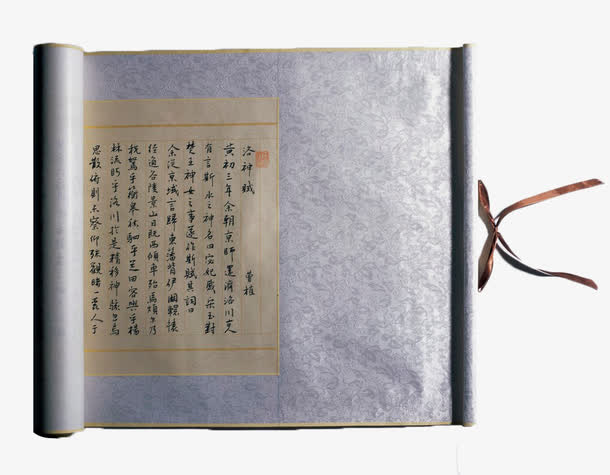 洛神賦
曹植
黄初三年余朝京師還濟洛川古人
有言斯水之神名曰宓妃感宋玉對
楚王神女之事遂作斯賦其詞曰
余從京域言歸東藩背伊闕轘轅
經通谷陵景山日既西傾車殆馬煩尔乃
税駕乎蘅皋秣駟乎芝田容與乎楊
林流眄乎洛川於是精移神駭忽焉
思散俯則未察仰以殊觀睹一麗人于